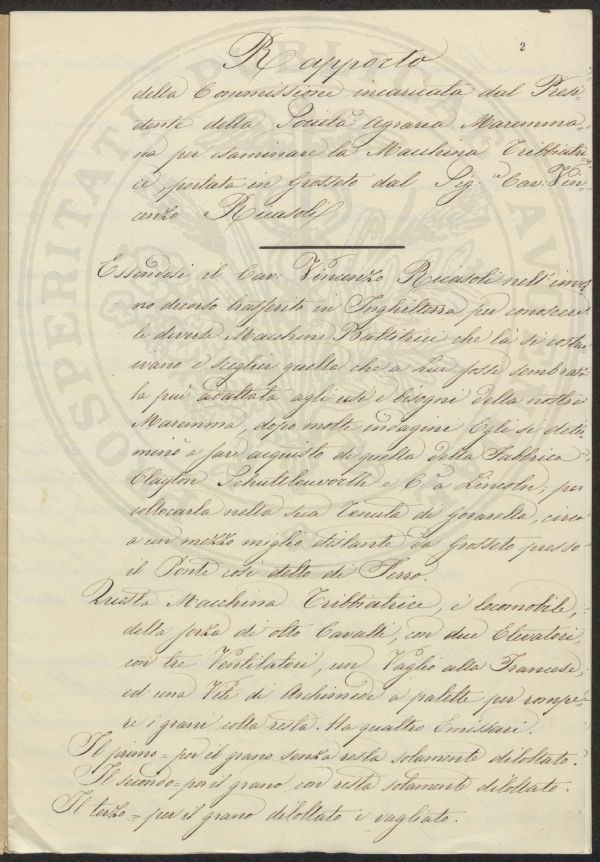 2
Rapporto
della Commissione incaricata dal Presi-
dente della Società Agraria Maremma-
na per esaminare la Macchina Tribbiatri-
ce, portata in Grosseto dal Sig. Cav. Vin-
cenzo Ricasoli
Essendosi il Cav: Vincenzo Ricasoli nell'inver-
no decorso trasferito in Inghilterra per conoscere
le diverse Macchine Battitrici che là si costru-
ivano e sceglier quella che a Lui fosse sembrata
la più adattata agli usi e bisogni della nostra
Maremma, dopo molte indagini Egli si deter-
minò a fare acquisto di quella della Fabbrica
Clayton Schuteleuvorthe e C.a Lincoln, per
collocarla nella sua Tenuta di Gorarella, circa
a un mezzo miglio distante da Grosseto presso
il Ponte così detto di Ferro.
Questa Macchina Tribbiatrice, è locomobile
della forza di otto Cavalli, con due Elevatori,
con tre Ventilatori, un Vaglio alla Francese,
ed una Vite di Archimede a palette per rompe-
re i grani colla resta. Ha quattro Emissari.
Il primo = per il grano senza resta solamente dilollato.
Il secondo = per il grano con resta solamente dilollato.
Il terzo = per il grano dilollato e vagliato.
PROSPERITATI PUBLICAE AUGENDAE